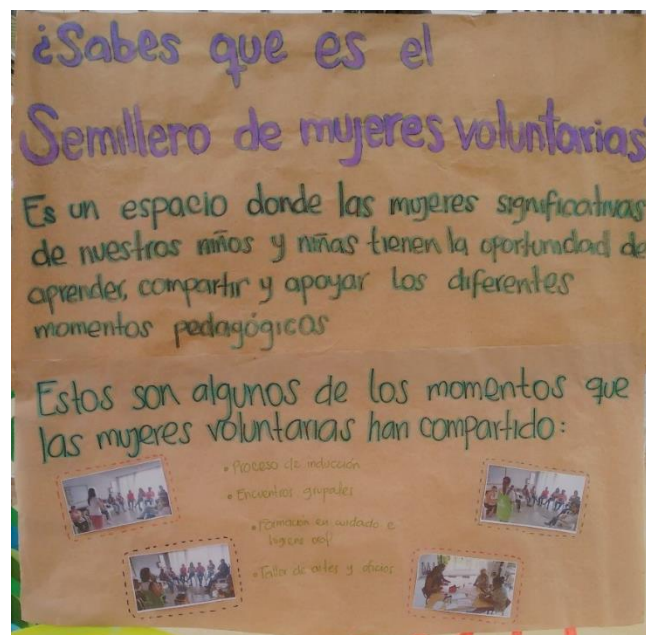 ¿Sabes que es el
Semillero de mujeres voluntarias
Es un espacio donde las mujeres significativas
de nuestros niños y niñas tienen la oportunidad de
aprender, compartir y apoyar los diferentes
momentos pedagógicos
Estos son algunos de los momentos que
las mujeres voluntarias han compartido:
• Proceso de inducción
• Encuentros grupales
• Formación en cuidado e
higiene oral
• Taller de artes y oficios